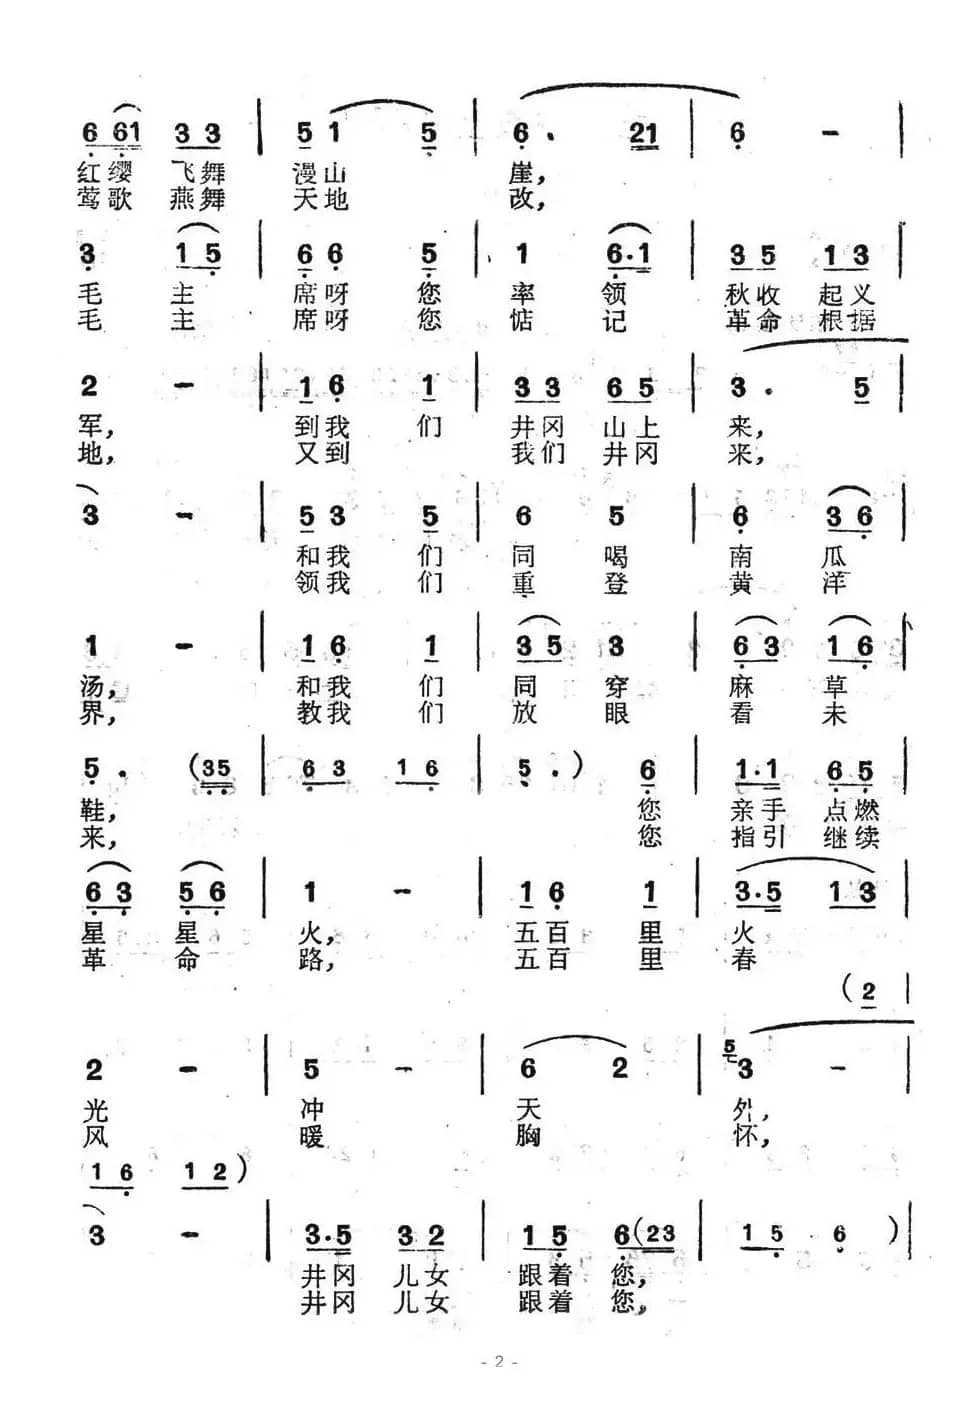 6 61 3 3 | 5 1 5 | 6 . 21 | 6 - |
红缨 飞舞 漫山 崖，
莺歌 燕舞 天地 改，
3 1 5 | 6 6 5 | 1 6·1 | 3 5 1 3 |
毛 主 席呀 您 率 领 秋收 起义
毛 主 席呀 您 惦 记 革命 根据
2 - | 1 6 1 | 3 3 6 5 | 3 . 5 |
军， 到我 们 井冈 山上 来，
地， 又到 我们 井冈 来，
3 - | 5 3 5 | 6 5 | 6 3 6 |
和我 们 同 喝 南 瓜
领我 们 重 登 黄 洋
1 - | 1 6 1 | 3 5 3 | 6 3 1 6 |
汤， 和我 们 同 穿 麻 草
界， 教我 们 放 眼 看 未
5 . (35 | 6 3 1 6 | 5 . ) 6 | 1·1 6 5 |
鞋， 您 亲手 点燃
来， 您 指引 继续
6 3 5 6 | 1 - | 1 6 1 | 3·5 1 3 |
星 星 火， 五百 里 火
革 命 路， 五百 里 春
(2 |
2 - | 5 - | 6 2 | 5 3 - |
光 冲 天 外，
风 暖 胸 怀，
1 6 1 2 )
3 - | 3·5 3 2 | 1 5 6 (23 | 1 5 6 ) |
井冈 儿女 跟着 您，
井冈 儿女 跟着 您，
- 2 -